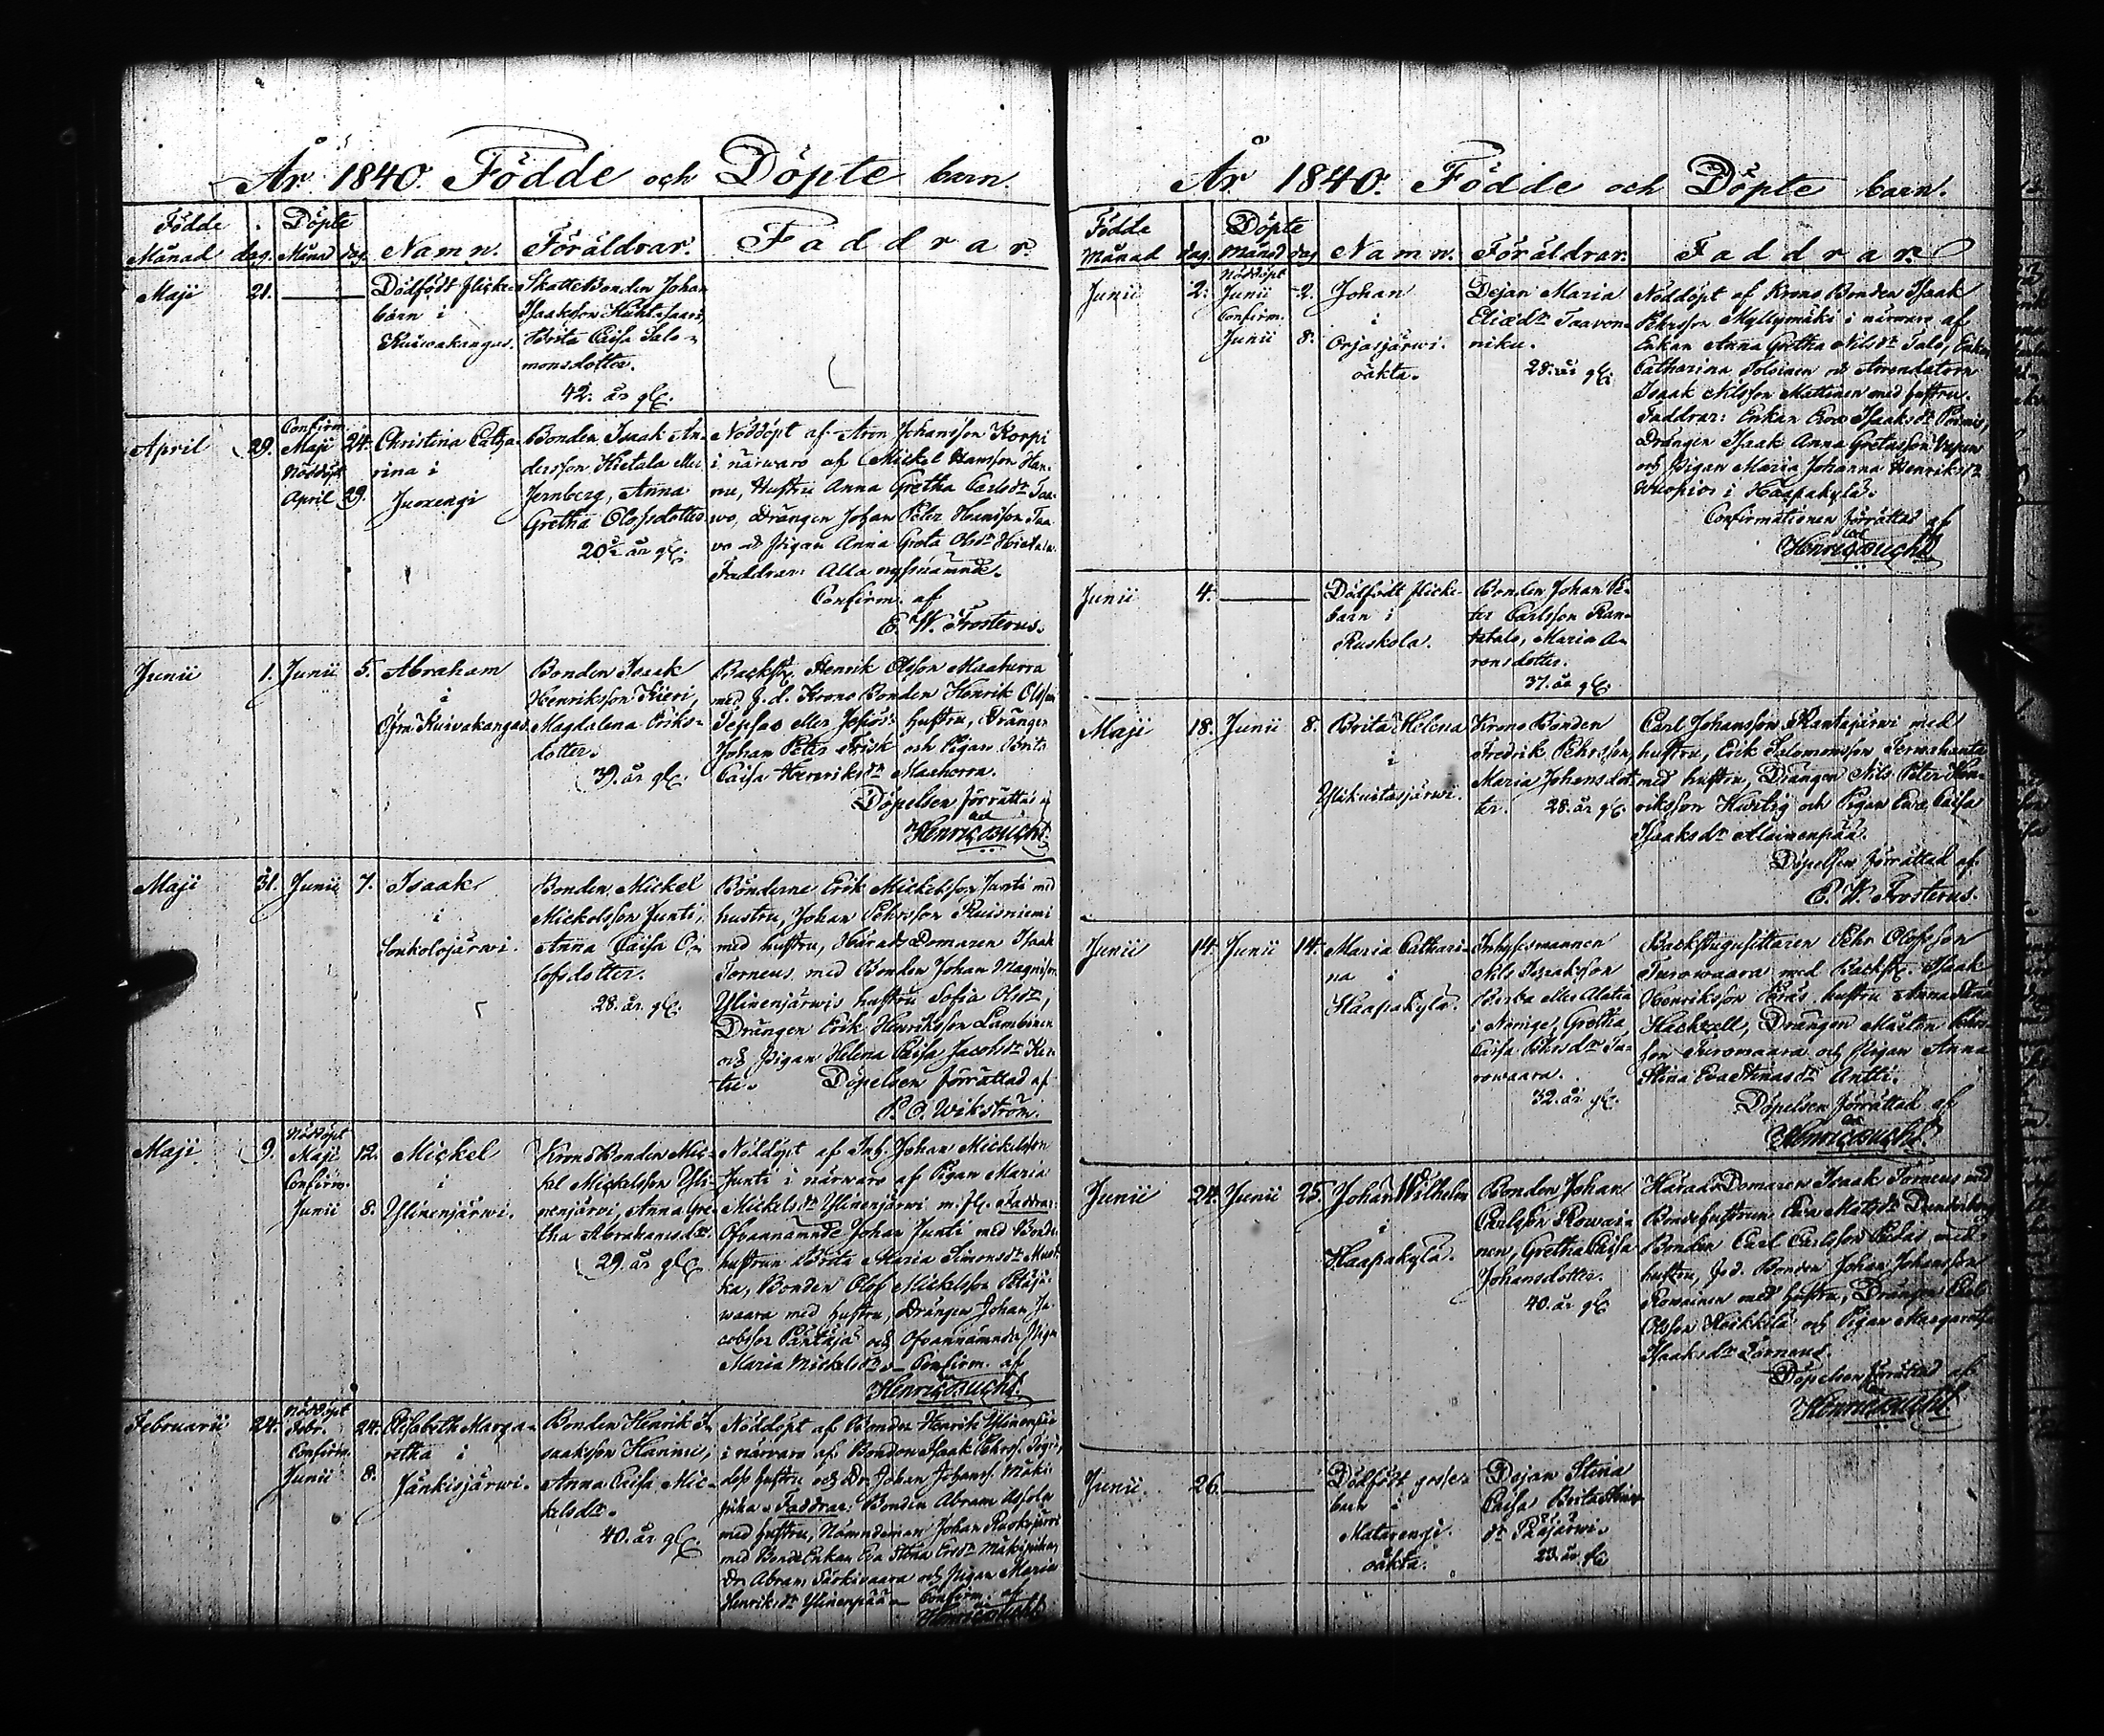 År 1840. Födde och Döpte barn.
Födde Döpte
Månad dag. Månad dag Namn. Föräldrar. Faddrar.
Maji 21. Dödfödt flicke-
barn i
Kuiwakangas.
SkatteBonden Johan
Isaaksson Huhtasaari,
Brita Caisa Salo-
monsdotter.
42. år gl.
April 29. Confirm.
Maji 24.
Nöddöpt
April 29.
Christina Catha-
rina i
Juoxengi
Bonden Isaak An-
dersson Hietala eller
Jernberg, Anna
Gretha Olofsdotter
20½ år gl.
Nöddöpt af Aron Johansson Korpi
i närwaro af Mickel Hansson Han-
nu, Hustru Anna Gretha Carlsdr Taa-
wo, Drängen Johan Peter Hansson Taa-
vo och Pigan Anna Greta Olsdr Hietala.
Faddrar: Alla nyssnämnde.
Confirm. af
E. W. Frosterus.
Junii 1. Junii 5. Abraham
i
Öfre Kuiwakangas
Bonden Isaak
Henriksson Kieri,
Magdalena Eriks-
dotter.
39. år gl.
Backst. Henrik Olsson Maaherra
med f. d. KronoBonden Henrik Olsson
hustru, Drängen
Johan Peter Frisk och Pigan Brita
Caisa Henriksdr Maaherra.
Döpelsen förrättad af
Henric Bucht.
Maji 31. Junii 7. Isaak
i
Soukolojärwi.
Bonden Mickel
Mickelsson Junti,
Anna Caisa O-
lofsdotter.
28. år gl.
Bönderne Erik Mickelsson Junti med
hustru, Johan Pehrsson Ruisniemi
med hustru, HäradsDomaren Isaak
Torneus med Bonden Johan Magnisson
Ylinenjärwis hustru Sofia Olsdr,
Drängen Erik Henriksson Lambinen
och Pigan Helena Caisa Jacobsdr Ker-
tu. Döpelsen förrättad af
P. O. Wikström.
Maji 9. Nöddöpt
Maji 12.
Confirm.
Junii 8.
Mickel
i
Ylinenjärwi.
KronoBonden Mic-
kel Mickelsson Yli-
nenjärwi, Anna Gre-
tha Abrahamsdr.
29. år gl.
Nöddöpt af Inh. Johan Mickelsson
Junti i närwaro af Pigan Maria
Mickelsdr Ylinenjärwi m. fl. Faddrar:
Ofvannämnde Johan Junti med Bonde-
hustrun Brita Maria Simonsdr Must-
ka, Bonden Olof Mickelsson
waara med hustru, Drängen Johan Ja-
cobsson Päntäjä och Ofvannämnde Pigan
Maria Mickelsdr. Confirm. af
Henric Bucht.
Februarii 24. Nöddöpt
Febr. 24.
Confirm.
Junii 8.
Elisabeth Marga-
retha i
Jänkisjärwi.
Bonden Henrik I-
saaksson Hannu,
Anna Caisa Mic-
kelsdr.
40. år gl.
Nöddöpt af Bonden Henrik Ylinenpää
i närwaro af Bonden Isaak Pehrss.
hustru och Dr. Johan Johanss. Mäki-
pika. Faddrar: Bonden Abram Assola
med hustru, Nämndeman Johan Ruokojärwi
med BondeEnkan Eva Stina Ersdr Mäkipika,
Dr. Abram Särkiwaara och Pigan Maria
Henriksdr Ylinenpää. Confirm. af
Henric Bucht.
År 1840. Födde och Döpte barn.
Födde Döpte
Månad dag. Månad dag Namn. Föräldrar. Faddrar.
Junii 2. Nöddöpt
Junii 2.
Confirm.
Junii 8.
Johan
i
Orjasjärwi.
oäkta.
Dejan Maria
Eliædr Taavon-
niku.
28. år gl.
Nöddöpt af KronoBonden Isaak
Pehrsson Myllymäki i närwaro af
Enkan Anna Gretha Nilsdr Talo, Enkan
Catharina Tolvinen och Arendatorn
Isaak Nilsson Mattinen med hustru.
Faddrar: Enkan Eva Isaaksdr
Drängen Isaak Anna Gretasson
och Pigan Maria Johanna Henriksdr
Wuopio i Haapakylä.
Confirmationen förrättad af
Henric Bucht
Junii 4. Dödfödt flicke-
barn i
Ruskola.
Bonden Johan Pe-
ter Carlsson Ran-
tatalo, Maria A-
ronsdotter.
37. år gl.
Maji 18. Junii 8. Brita Helena
i
Ylikuitasjärwi.
KronoBonden
Fredrik Pehrsson,
Maria Johansdot-
ter. 28. år gl.
Carl Johansson Rantajärwi med
hustru, Erik Salomonsson Terwahauta
med hustru, Drängen Nils Peter Hen-
riksson Hurtig och Pigan Eva Caisa
Isaaksdr Alainenpää.
Döpelsen förrättad af
E. W. Frosterus.
Junii 14. Junii 14. Maria Cathari-
na i
Haapakylä.
Inhysesmannen
Nils Isaaksson
eller Alatia
i Norrige, Gretha
Caisa Pehrsdr Tu-
rowaara.
32. år gl.
Backstugusittaren Pehr Olofsson
Turowaara med Backst. Isaak
Henriksson hustru Anna Stina
Hackzell, Drängen Mårten Pehrs-
son Turowaara och Pigan Anna
Stina EvaStinasdr Antti.
Döpelsen förrättad af
Henric Bucht.
Junii 24. Junii 25. Johan Wilhelm
i
Haapakylä.
Bonden Johan
Carlsson Rowai-
nen, Gretha Caisa
Johansdotter.
40. år gl.
HäradsDomaren Isaak Torneus med
Bondehustrun Eva Matsdr Dunderberg,
Bonden Carl Carlsson med
hustru, f.d. Bonden Johan Johansson
Rowainen med hustru, Drängen Carl
Olsson Heikkilä och Pigan Margaretha
Isaaksdr Torneus.
Döpelsen förrättad af
Henric Bucht
Junii 26. Dödfödt gosse-
barn i
Matarengi.
oäkta.
Dejan Stina
Caisa BritaStinas-
dr Pääjärwi.
23. år gl.